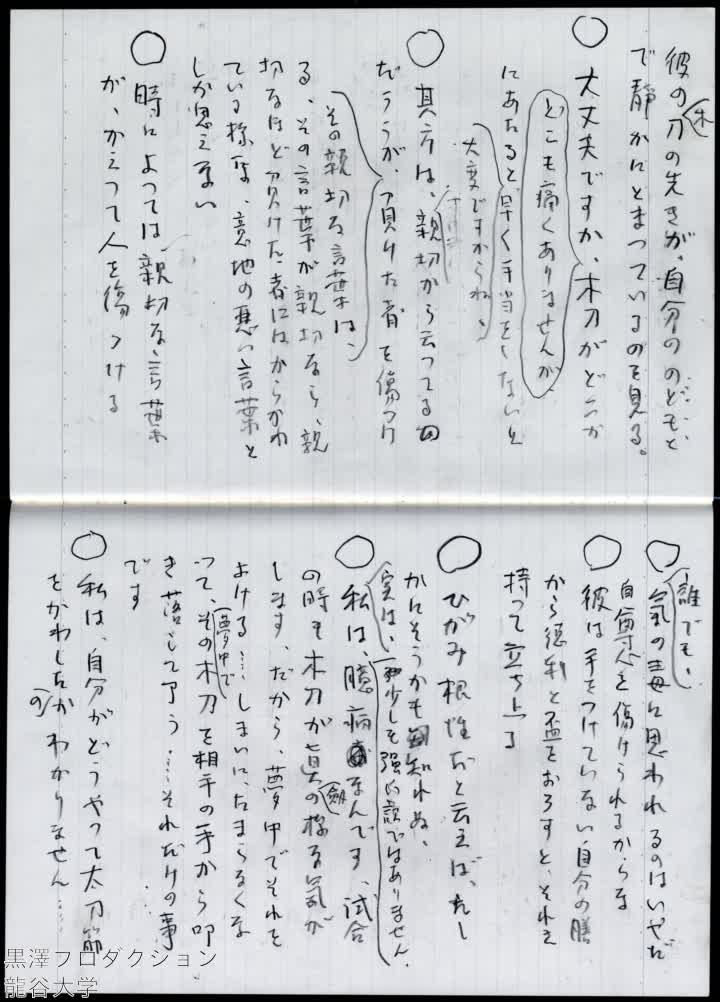 彼の木刀の先きが、自分ののどもと
で静かにとまっているのを見る。
○大丈夫ですか、木刀がどこか
どこも痛くありませんか
にあたると早く手当をしないと
大変ですからね、
○其方は、親切から云ってる
だろうが、負けた者を傷つけ
その親切な言葉は、
る、その言葉が親切なら、親
切なほど負けた者にはからかわ
れている様な、意地の悪い言葉と
しか思えない
○時によっては親切な言葉
が、かえって人を傷つける
○誰でも、気の毒に思われるのはいやだ
自尊心を傷けられるからな
○彼は手をつけていない自分の膳
から徳利と盃をおろすと、それを
持って立ち上る
○ひがみ根性だと云えば、たし
かにそうかも知れぬ、
実は、少しも強い訳ではありません、
○私は、臆病なんです、試合
の時も木刀が真剣の様な気が
します、だから、夢中でそれを
よける……しまいにたまらなくな
って、夢中でその木刀を相手の手から叩
き落して了う……それだけの事
です
○私は、自分がどうやって太刀筋
をかわしたのかわかりません……
黒澤プロダクション
龍谷大学